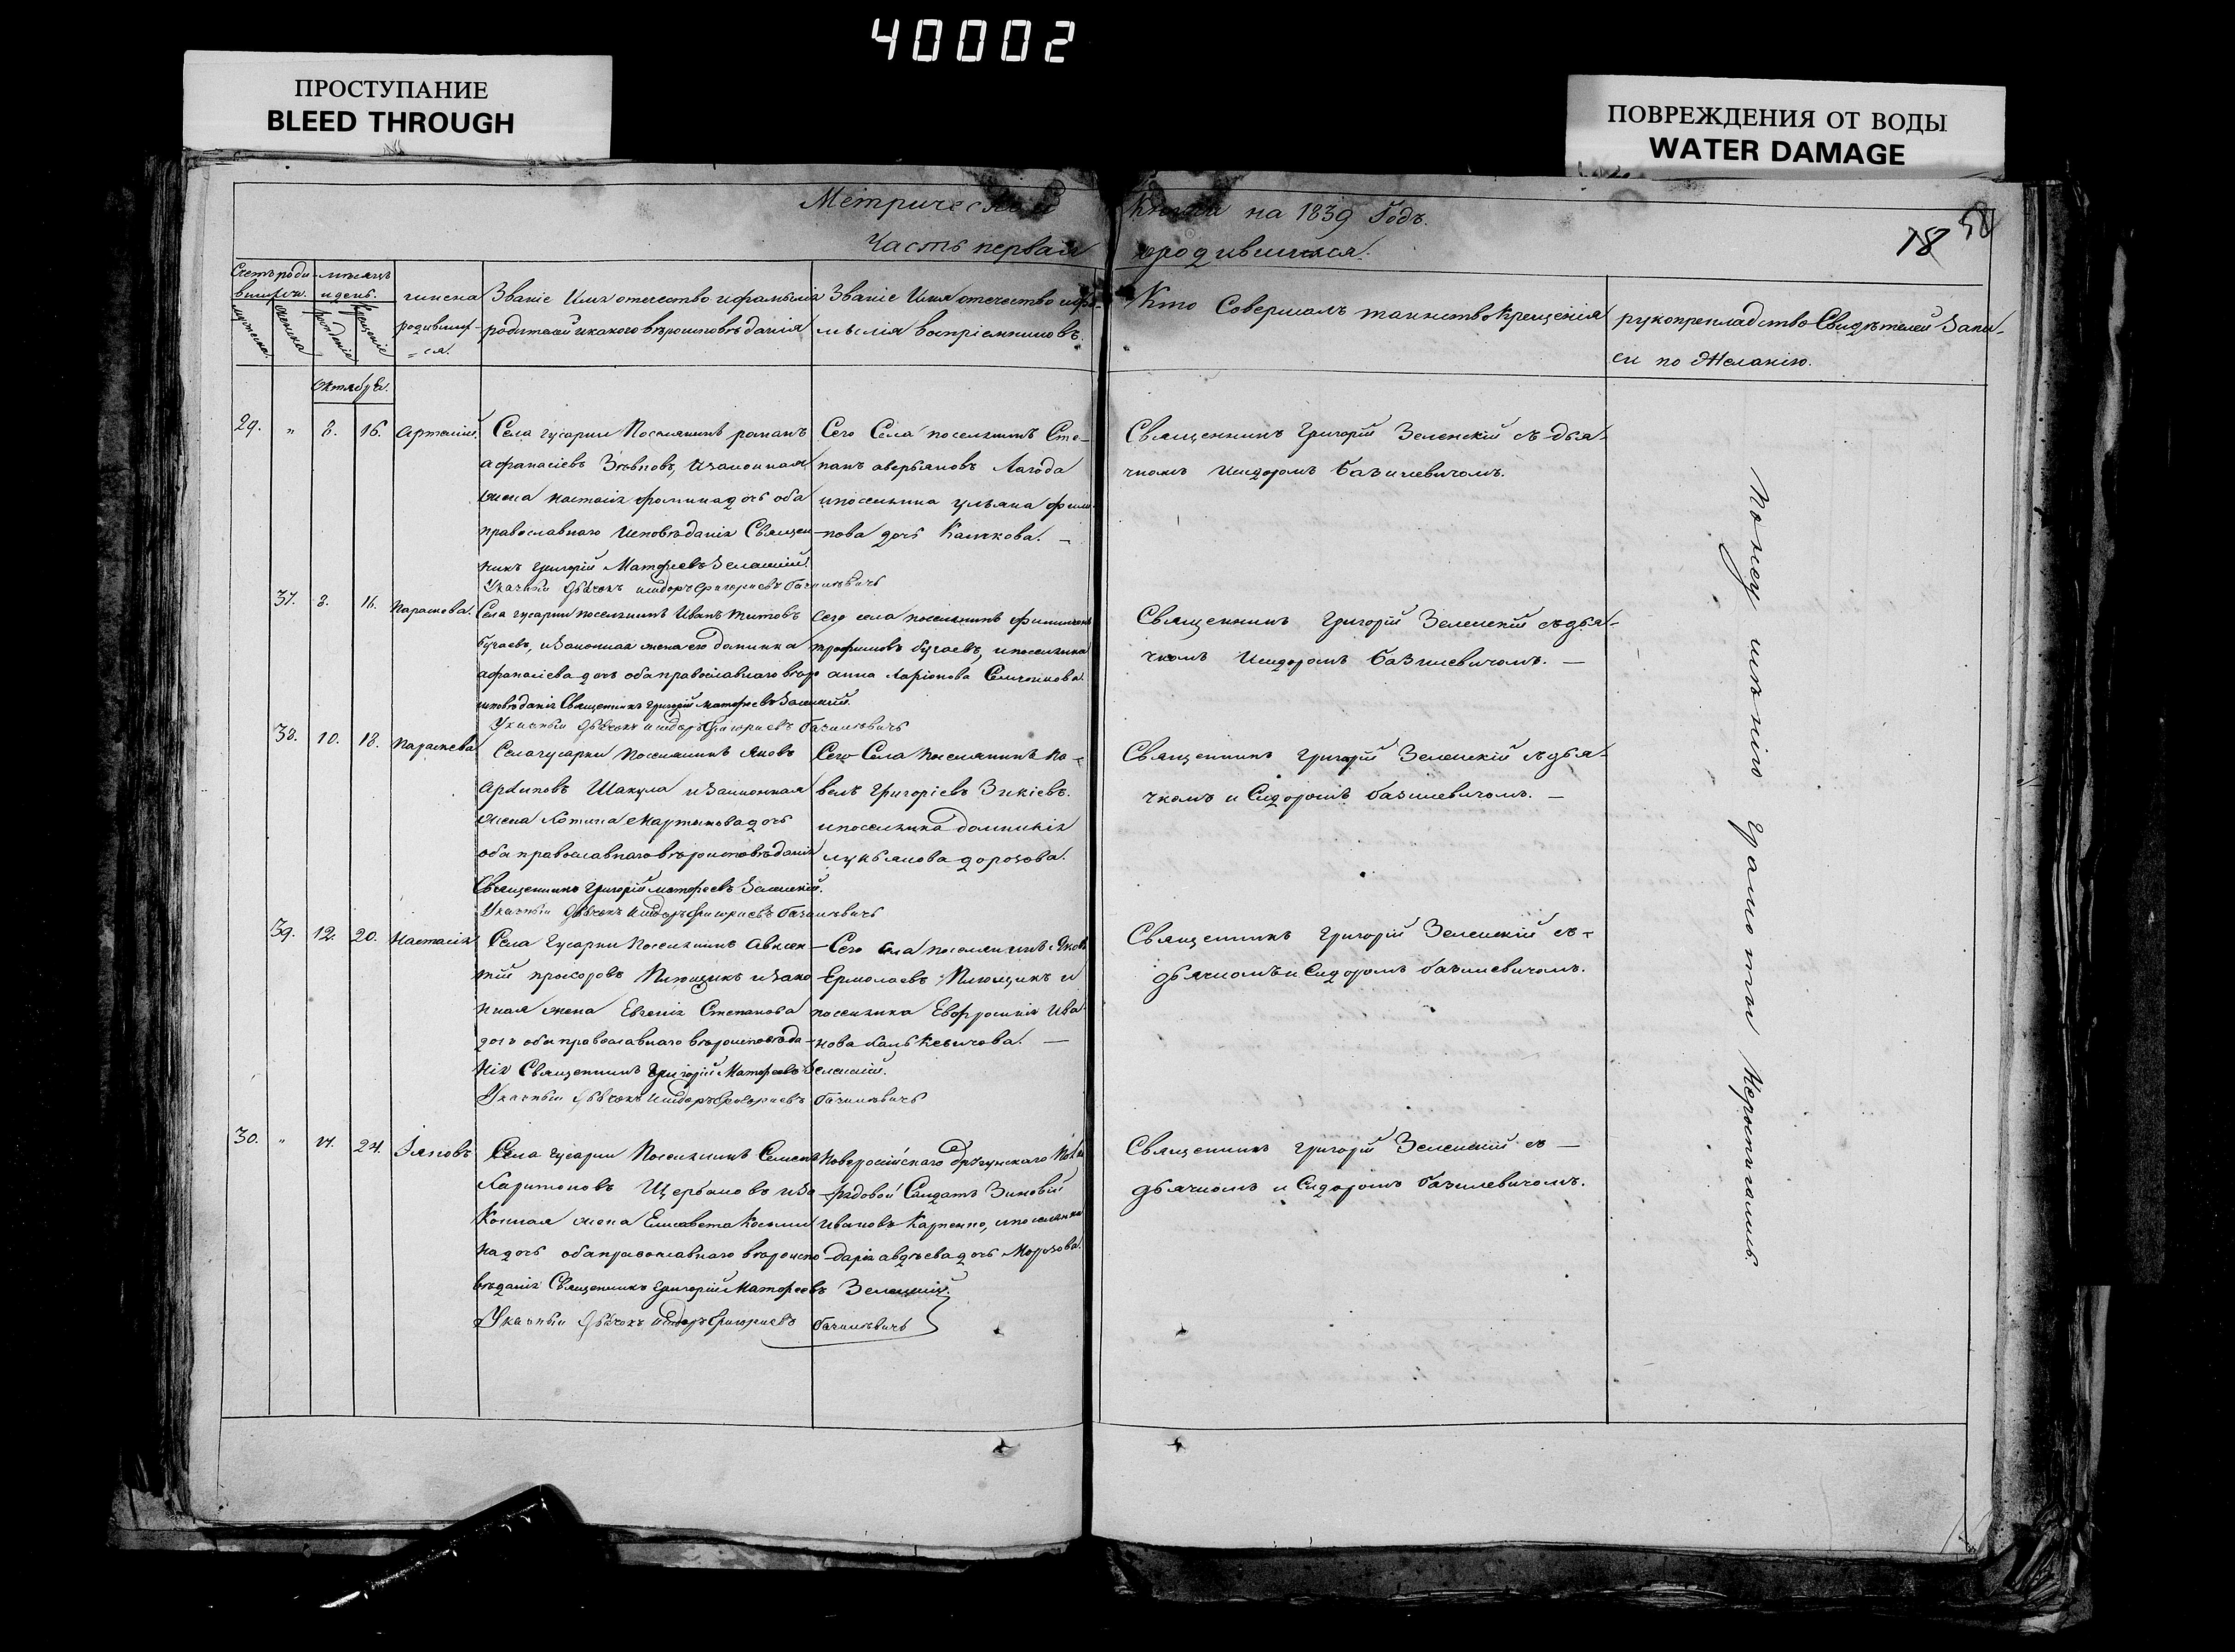 40002
ПРОСТУПАНИЕ
BLEED THROUGH
ПОВРЕЖДЕНИЯ ОТ ВОДЫ
WATER DAMAGE
Метрической Книги на 1839 Годъ.
Часть первая ородившихся.
18 58
Счетъ роди-
вшихся.
мужеска.
женска
мѣсяцъ
и день.
рожденіе
крещеніе
имена
родивших-
=ся.
Званіе Имя отечество ифамилія
родителей икакого вѣроисповѣданія
Званіе Имя отечество ифа-
милія воспріемниковъ.
Кто Совершалъ таинство Крещенія
рукоприкладство Свидѣтелей Запи-
си по Желанію.
Октябрь.
29. " 8. 16. Артемій.
Села гусарки Поселянинъ романъ
афанасіевъ, изаконная
жена настасія фомина дочь оба
православнаго Исповѣданія Священ-
никъ григорій Матфеевъ Зеленскій.
Указный Дьячокъ исидоръ григориевъ базилевичъ
Сего Села поселянинъ Сте-
панъ аверьяновъ Лагода
ипоселянка ульяна фили-
пова дочь. —
Священникъ Григорій Зеленскій съ дья-
чкомъ Исидоромъ базилевичомъ.
37. 8. 16. Параскева.
Села гусарки поселянинъ Иванъ титовъ
бугаевъ, изаконная жена его домника
афанасіева дочь оба православнаго вѣро
исповѣданія Священникъ григорій матфеевъ Зеленскій.
Указный Дьячокъ исидоръ григориевъ базилевичъ
Сего села поселянинъ
трофимовъ бугаевъ, ипоселянка
анна Ларіонова
Священникъ Григорій Зеленскій съ дья-
чкомъ Исидоромъ базилевичомъ. —
38. 10. 18. Параскева
Села гусарки Поселянинъ Яковъ
Шакула изаконная
жена Мартинова дочь
оба православнаго вѣроисповѣданія
Священникъ Григорій матфеевъ Зеленскій.
Указный Дьячокъ исидоръ григориевъ базилевичъ
Сего Села Поселянинъ Па-
велъ Григоріевъ Зикіевъ.
ипоселянка домникія
лукьянова дорохова.
Священникъ Григорій Зеленскій съ дья-
чкомъ и Сидоромъ базилевичомъ. —
39. 12. 20. Настасія
Села Гусарки Поселянинъ Авксен-
тій прохоровъ Плющикъ изако-
нная жена Евгенія Степанова
дочь оба православнаго вѣроисповѣда-
нія Священникъ Григорій Матфеевъ Зеленскій.
Указный Дьячокъ исидоръ григориевъ базилевичъ
Сего села поселянинъ Яковъ
Ермолаевъ Плющикъ и
поселянка Евфросинія Ива-
нова. —
Священникъ Григорій Зеленскій съ-
дьячкомъ и Сидоромъ базилевичомъ.
30. " 24. Іяковъ
Села Гусарки Поселянинъ Семенъ
Харитоновъ Щербаковъ иза-
конная жена Елисавета Косми-
на дочь оба православнаго вѣроиспо-
вѣданія Священникъ Григорій Матфеевъ Зеленскій.
Указный Дьячокъ исидоръ григориевъ базилевичъ
Новеросійскаго драгунскаго Полка
рядовой Салдатъ Зиновій
Ивановъ Карпенко, ипоселянка
дарія авдѣева дочь Морозова.
Священникъ Григорій Зеленскій съ —
дьячкомъ и Сидоромъ базилевичомъ.
По неу имѣнію грамоты